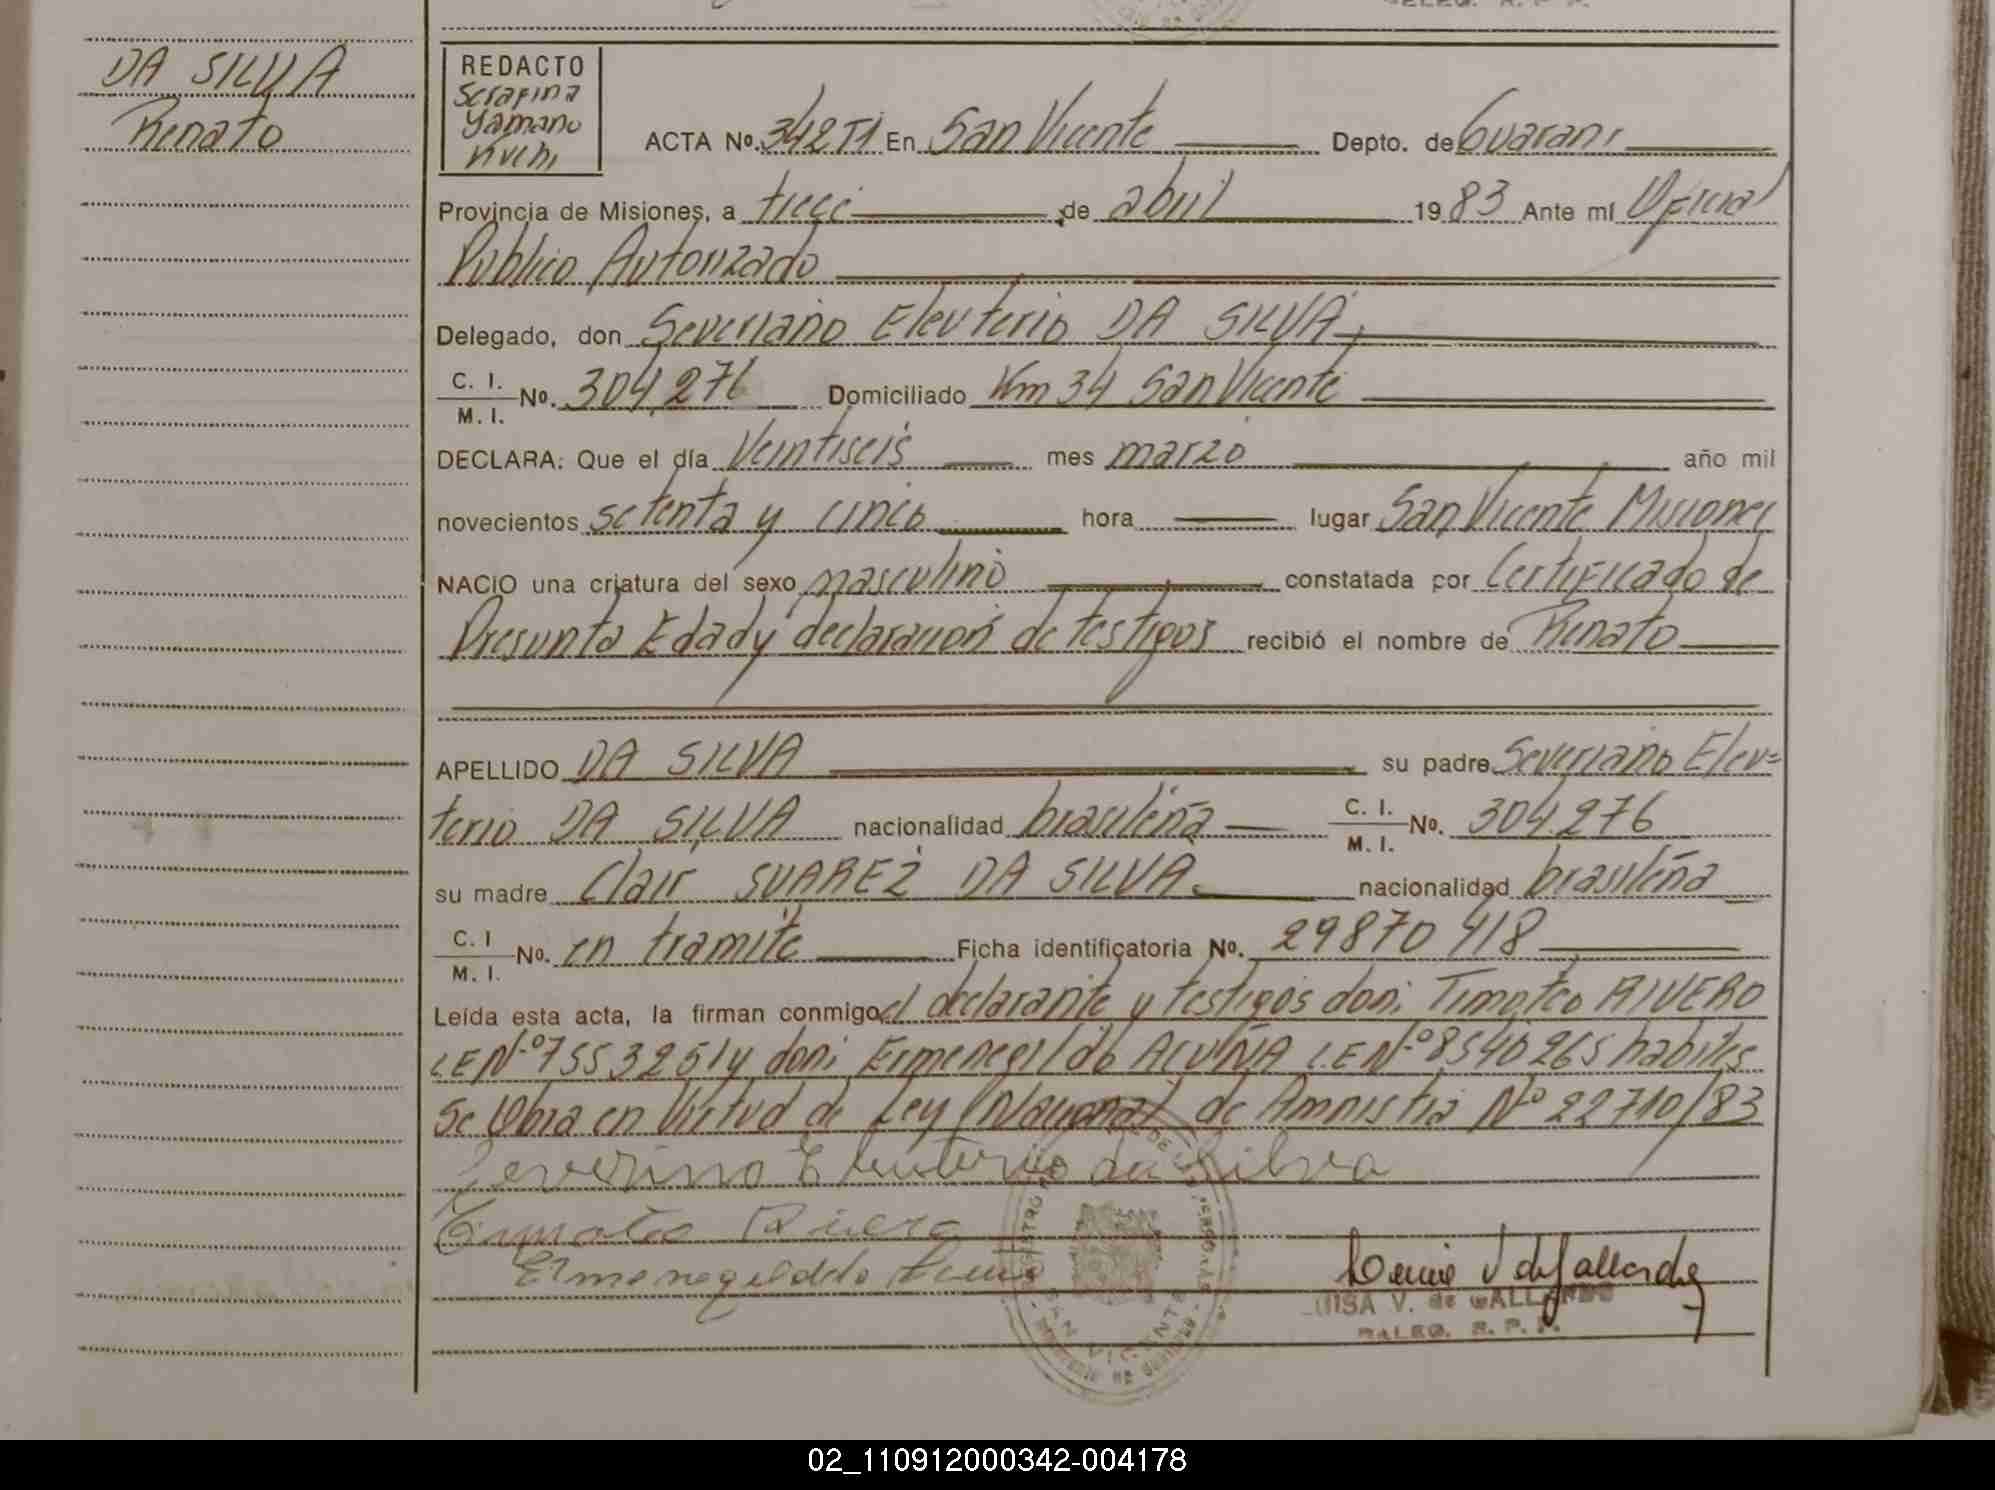 DA SILVA
Renato
REDACTO
Serafina
Yamano
Kuchi
ACTA No. 342T1 En San Vicente Depto. de Guarani
Provincia de Misiones, a trece de abril 1983 Ante mí Oficial
Publico Autorizado
Delegado, don Severiano Eleuterio DA SILVA,
C. I.
M. I. No. 304.276 Domiciliado Km 34 San Vicente
DECLARA: Que el día Veintiseis mes marzo año mil
novecientos setenta y cinco hora lugar San Vicente Misiones
NACIO una criatura del sexo masculino constatada por Certificado de
Presunta Edad y declaracion de testigos recibió el nombre de Renato
APELLIDO DA SILVA su padre Severiano Eleu=
terio DA SILVA nacionalidad brasileña C. I.
M. I. No. 304.276
su madre Clair SUAREZ DA SILVA. nacionalidad brasileña
C. I
M. I. No. en tramite Ficha identificatoria No. 29870418
Leída esta acta, la firman conmigo el declarante y testigos don: Timoteo RIVERO
LE Nº 7553251 y don: Ermenegildo ACUÑA LE Nº 8540265 habiles
Se Obra en Virtud de Ley Nacional de Amnistia Nº 22710/83
Severino Eleuterio da Silva
Timoteo Rivero
Ermenegildo Acuña
SAN VICENTE
V. de GALLARDO
DALEG. R. P. P.
02_110912000342-004178